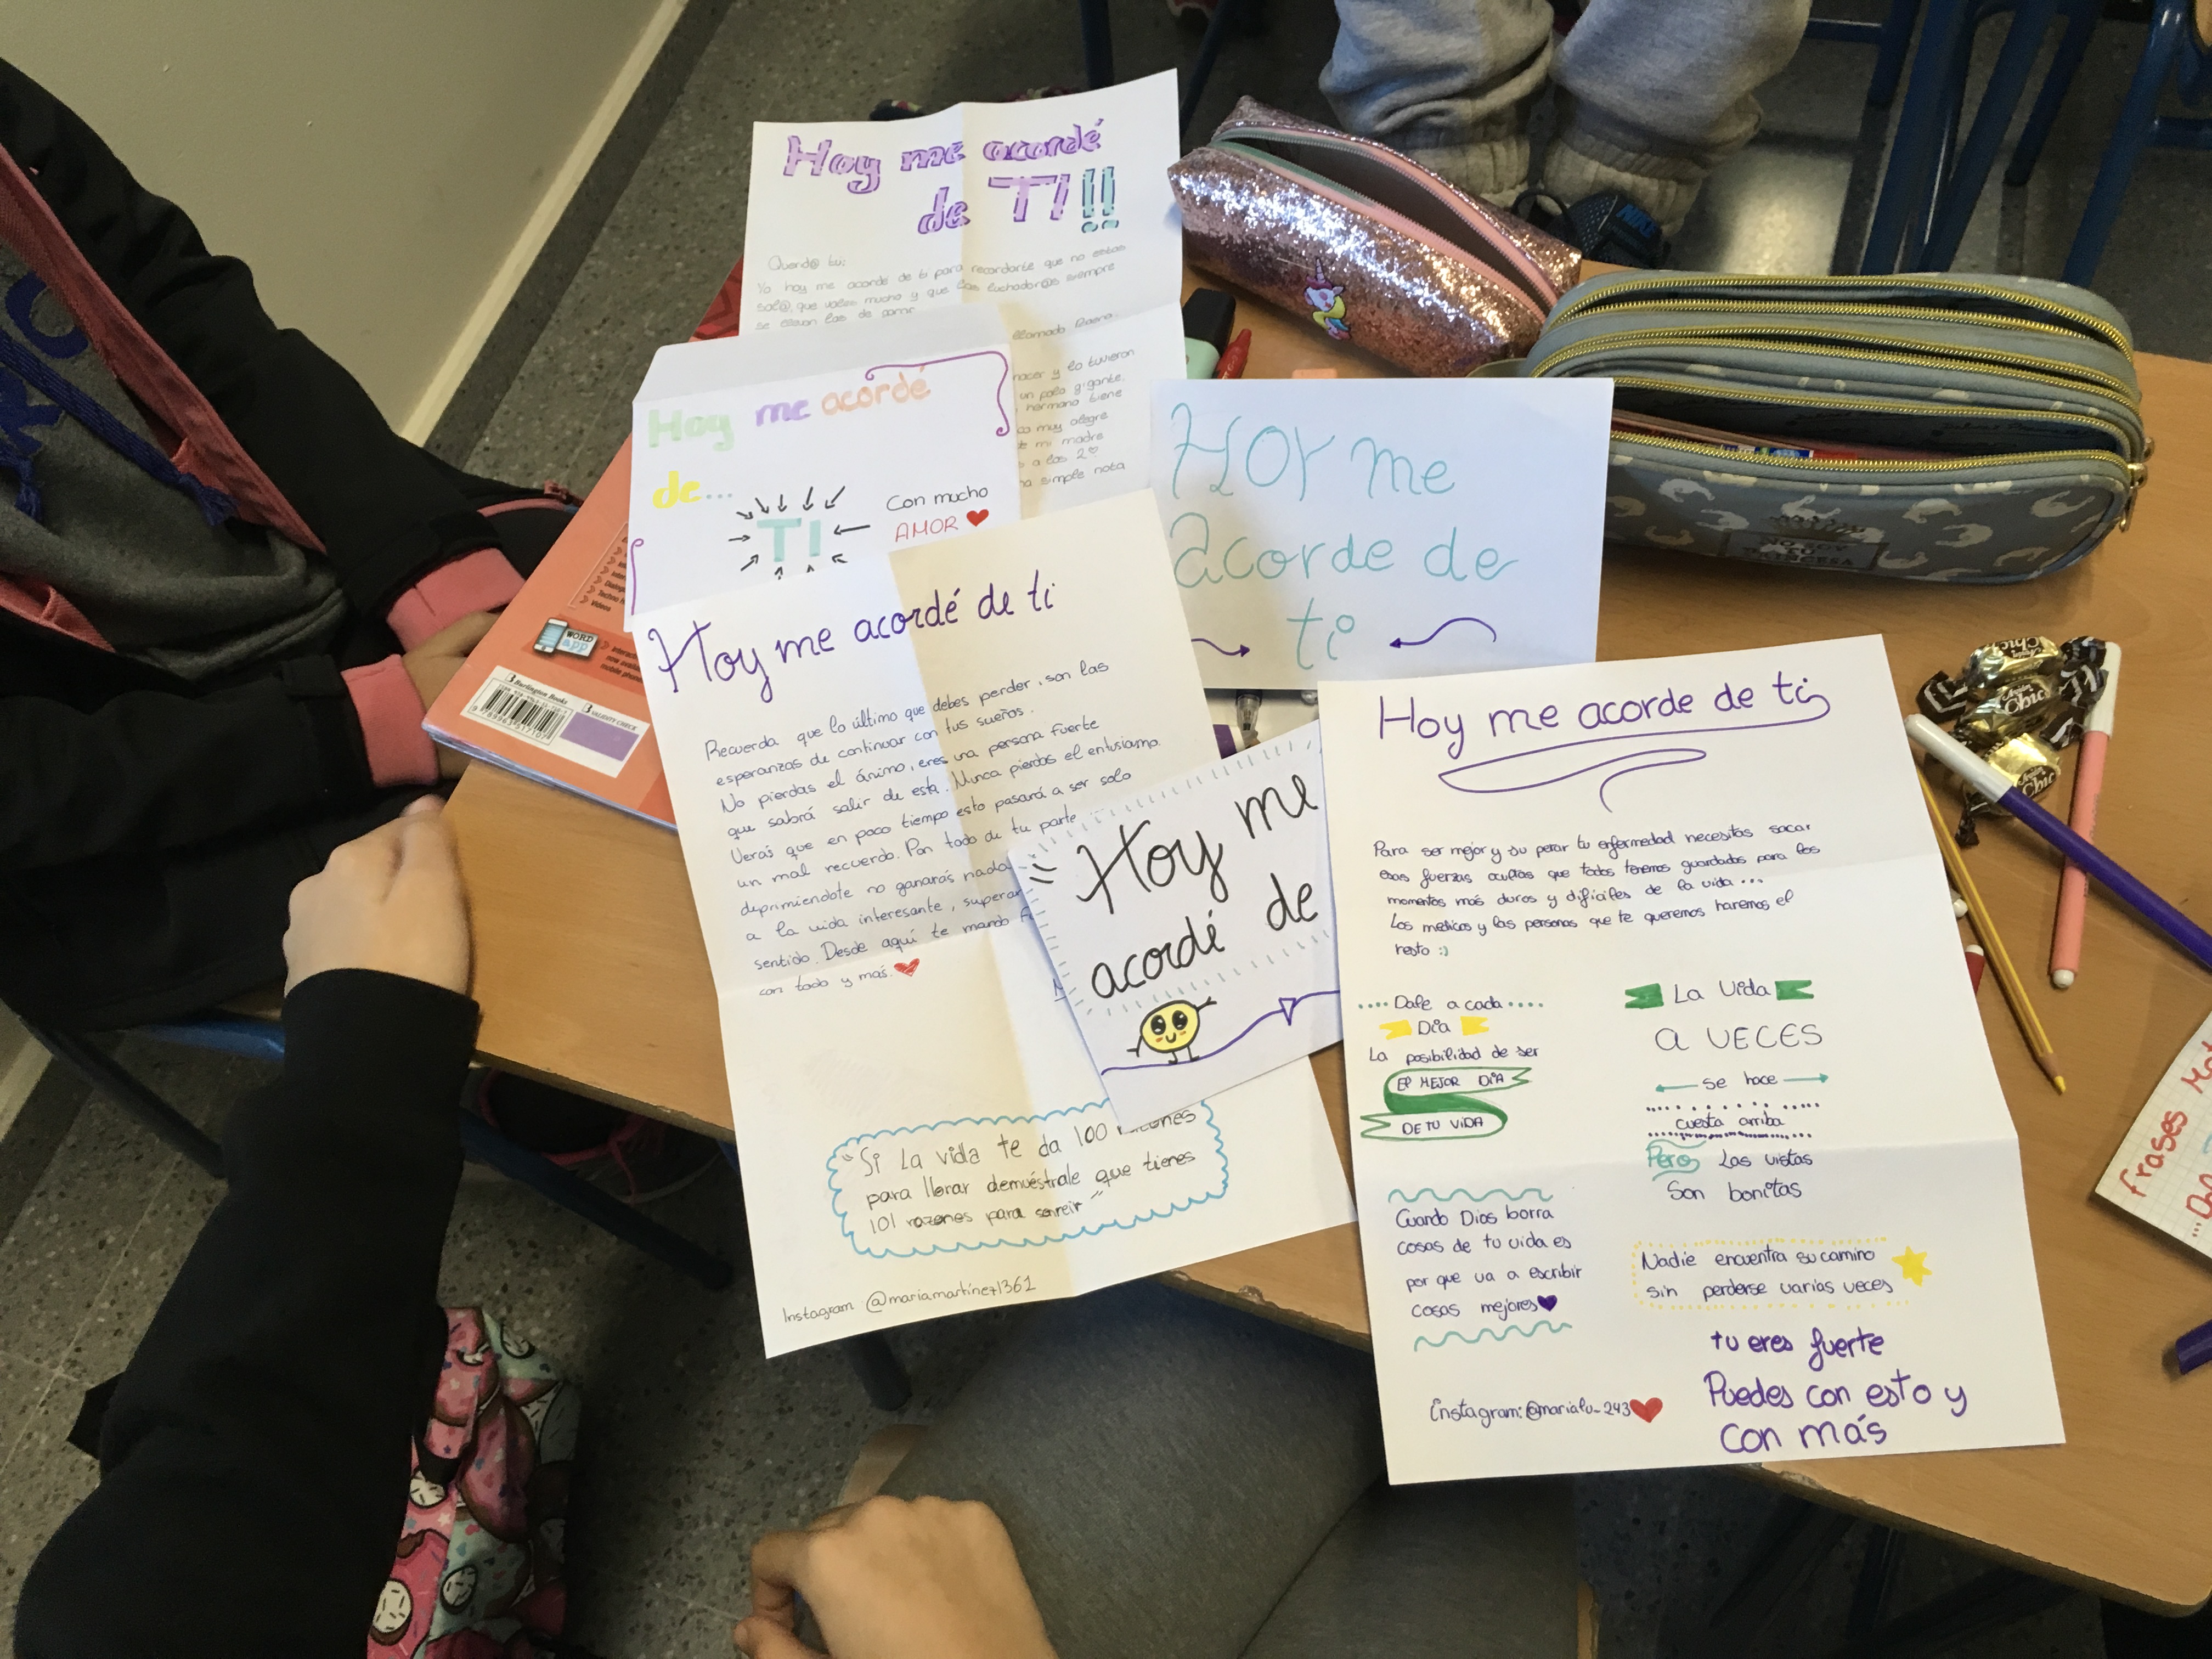 Hoy me acordé
de TI!!
Querid@ tú:
Yo hoy me acordé de ti para recordarte que no estas
sol@, que vales mucho y que l@s luchador@s siempre
se llevan las de
llamado
nacer y lo tuvieron
un palo gigante.
hermano tiene
muy alegre
mi madre
a las 2♡
simple nota
Hoy me acordé
de...
TI
Con mucho
AMOR ❤
HOY me
acorde de
ti
Hoy me acordé de ti
Recuerda que lo último que debes perder, son las
esperanzas de continuar con tus sueños.
No pierdas el ánimo, eres una persona fuerte
que sabrá salir de esta. Nunca pierdas el entusiamo.
Verás que en poco tiempo esto pasará a ser solo
un mal recuerdo. Pon todo de tu parte
deprimiendote no ganarás nada
a la vida interesante, superar
sentido. Desde aquí te mando
con todo y más. ❤
"Si La vida te da 100 razones
para llorar demuéstrale que tienes
101 razones para sonreir"
Instagram @mariamartinez1361
Hoy me
acordé de
Hoy me acorde de ti
Para ser mejor y superar tu enfermedad necesitas sacar
esas fuerzas ocultas que todos tenemos guardados para los
momentos más duros y dificiles de la vida...
Los medicos y las personas que te queremos haremos el
resto :)
.... Dale a cada .....
Dia
La posibilidad de ser
El MEJOR DIA
DE TU VIDA
La Vida
A VECES
se hace
cuesta arriba
Pero Las vistas
Son bonitas
Cuando Dios borra
cosas de tu vida es
por que va a escribir
cosas mejores💜
Nadie encuentra su camino
sin perderse varias veces
tu eres fuerte
Puedes con esto y
con más
Instagram: @marialu_243❤
WORD
app
Burlington Books
VALIDITY CHECK
NO SOY
TU
PRINCESA
NIKE
Chic
Chic
Chic
frases Mot